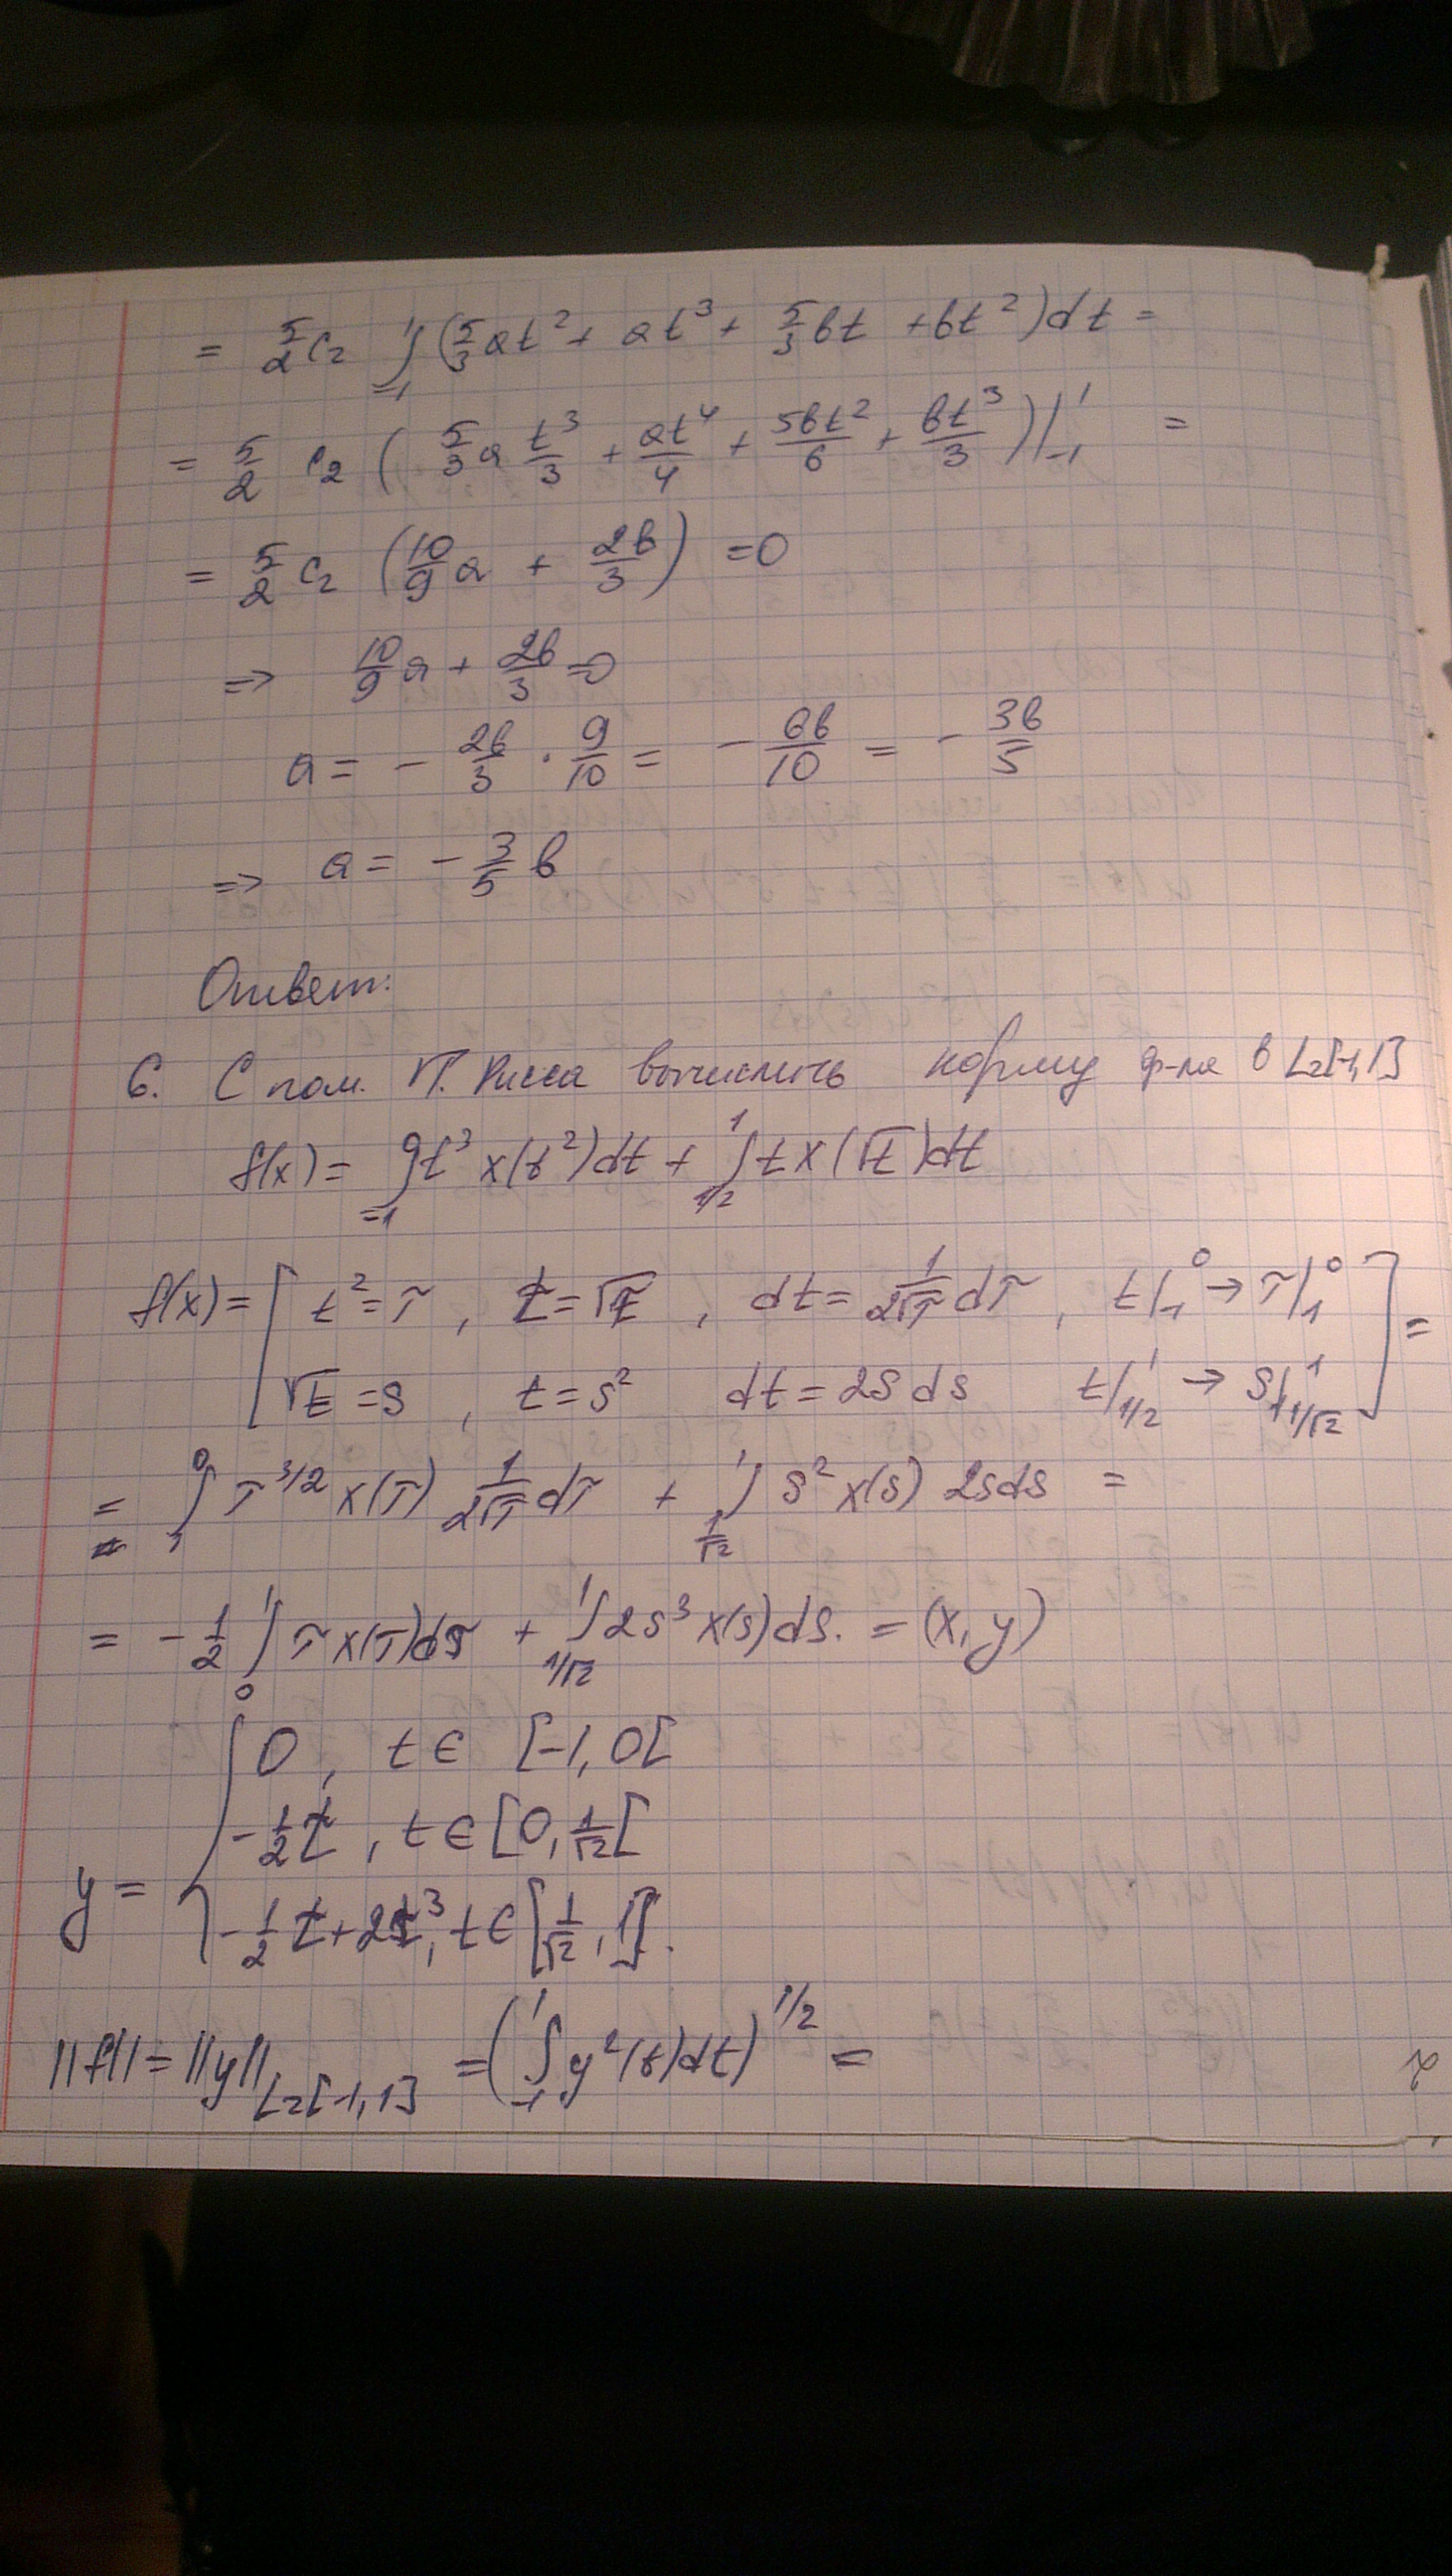 = 5/2 c₂ ∫₋₁¹ (5/3 at² + at³ + 5/3 bt + bt²)dt =
= 5/2 c₂ ( 5/3 a t³/3 + at⁴/4 + 5bt²/6 + bt³/3 )|₋₁¹ =
= 5/2 c₂ (10/9 a + 2b/3) = 0
=> 10/9 a + 2b/3 = 0
a = - 2b/3 · 9/10 = - 6b/10 = - 3b/5
=> a = - 3/5 b
Ответ:
6. С пом. Т. Рисса вычислить норму ф-ла в L₂[-1,1]
f(x) = ∫₋₁⁰ t³ x(t²)dt + ∫_{1/2}^1 t x(√t)dt
f(x) = [ t² = τ , t = √τ , dt = 1/(2√τ) dτ , t|₋₁⁰ → τ|₁⁰ ] =
√t = s , t = s² dt = 2s ds t|_{1/2}^1 → s|_{1/√2}^1
= ∫₁⁰ τ^{3/2} x(τ) 1/(2√τ) dτ + ∫_{1/√2}^1 s² x(s) 2s ds =
= - 1/2 ∫₀¹ τ x(τ)dτ + ∫_{1/√2}^1 2s³ x(s)ds. = (x, y)
0 , t ∈ [-1, 0[
- 1/2 t , t ∈ [0, 1/√2[
y = { - 1/2 t + 2t³, t ∈ [1/√2, 1].
||f|| = ||y||_{L₂[-1,1]} = (∫₋₁¹ y²(t)dt)^{1/2} =